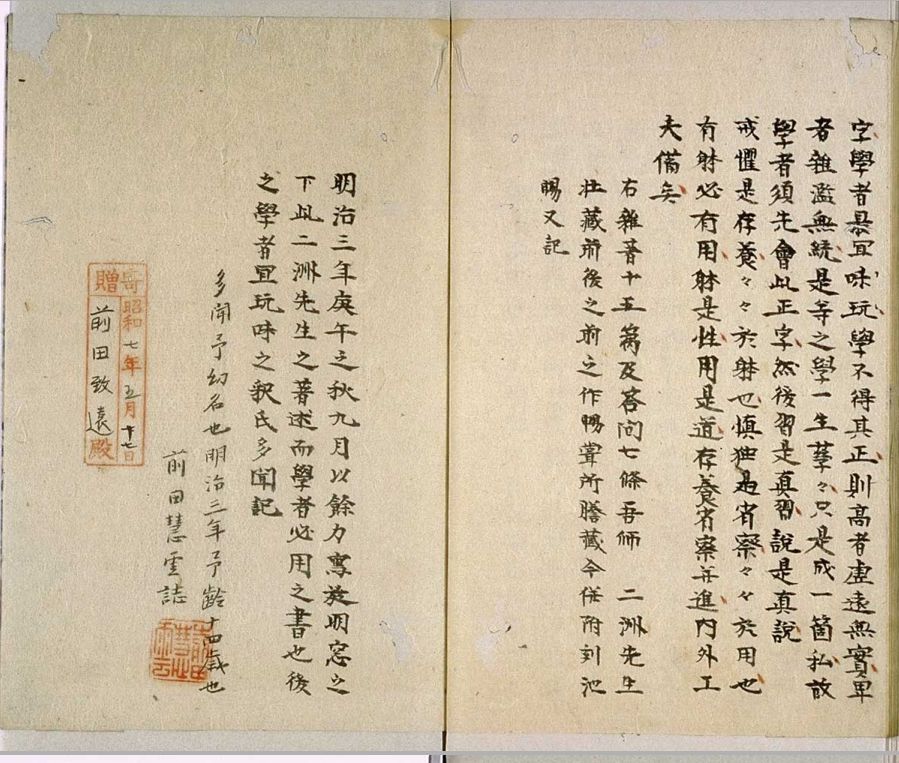 字學者最宜味玩學不得其正則高者虛遠無實卑
者雜濫無統是等之學一生孳々只是成一箇私故
學者須先會此正字然後習是真習說是真說
戒懼是存養々々於躰也慎独是省察々々於用也
有躰必有用躰是性用是道存養省察并進內外工
夫備矣
右雜著十五篇及荅問七條吾師 二洲先生
壮藏前後之前之作鴨葦所謄藏今併附刻池
賜又記
明治三年庚午之秋九月以餘力寫於明窓之
下此二洲先生之著述而學者必用之書也後
之學者宜玩味之釈氏多聞記
多聞予幼名也明治三年予齡十四歲也
前田慧雲誌
寄贈
昭和七年五月廿七日
前田致遠殿